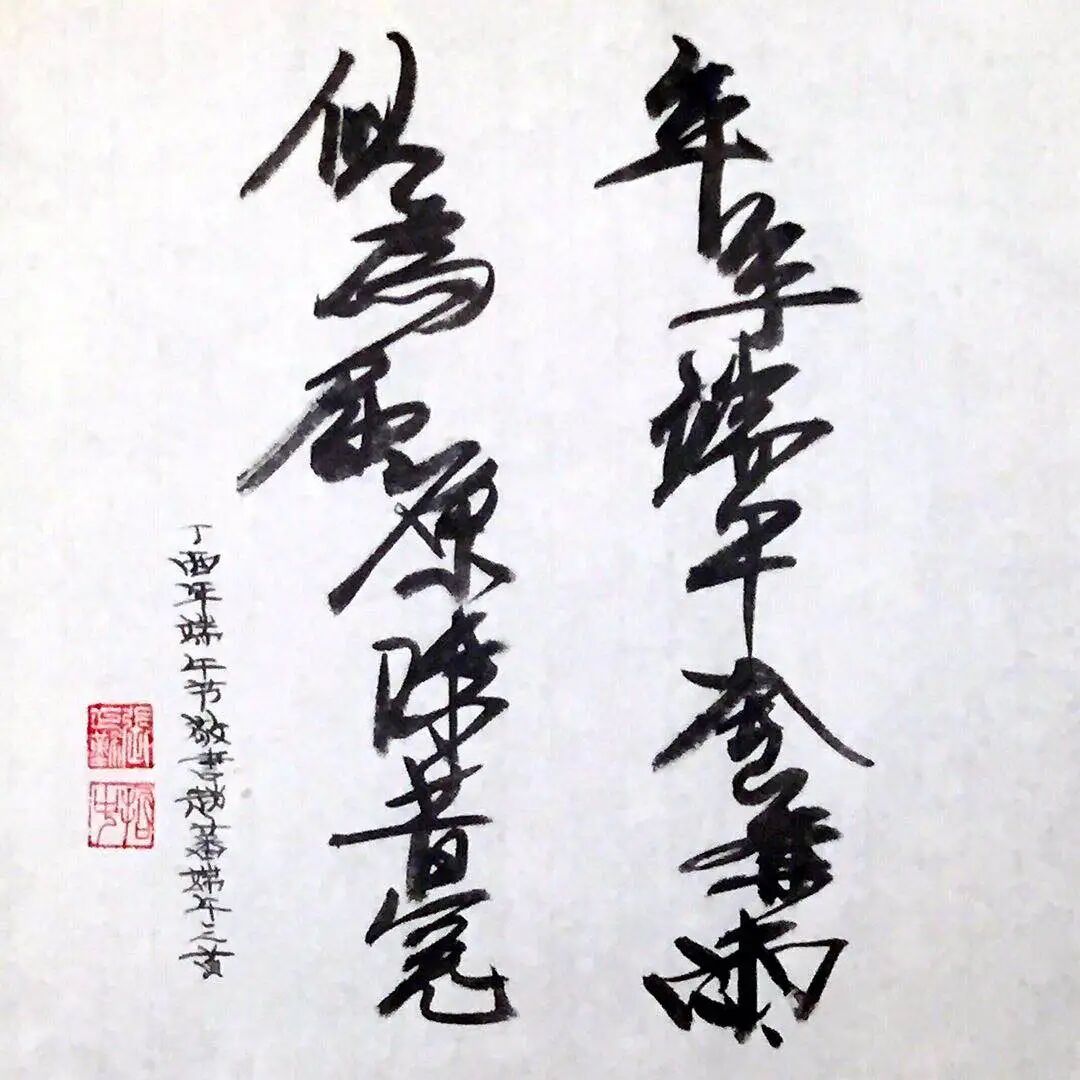 年年端午風兼雨
似為屈原陳昔冤
丁酉年端午节敬書趙蕃端午三首